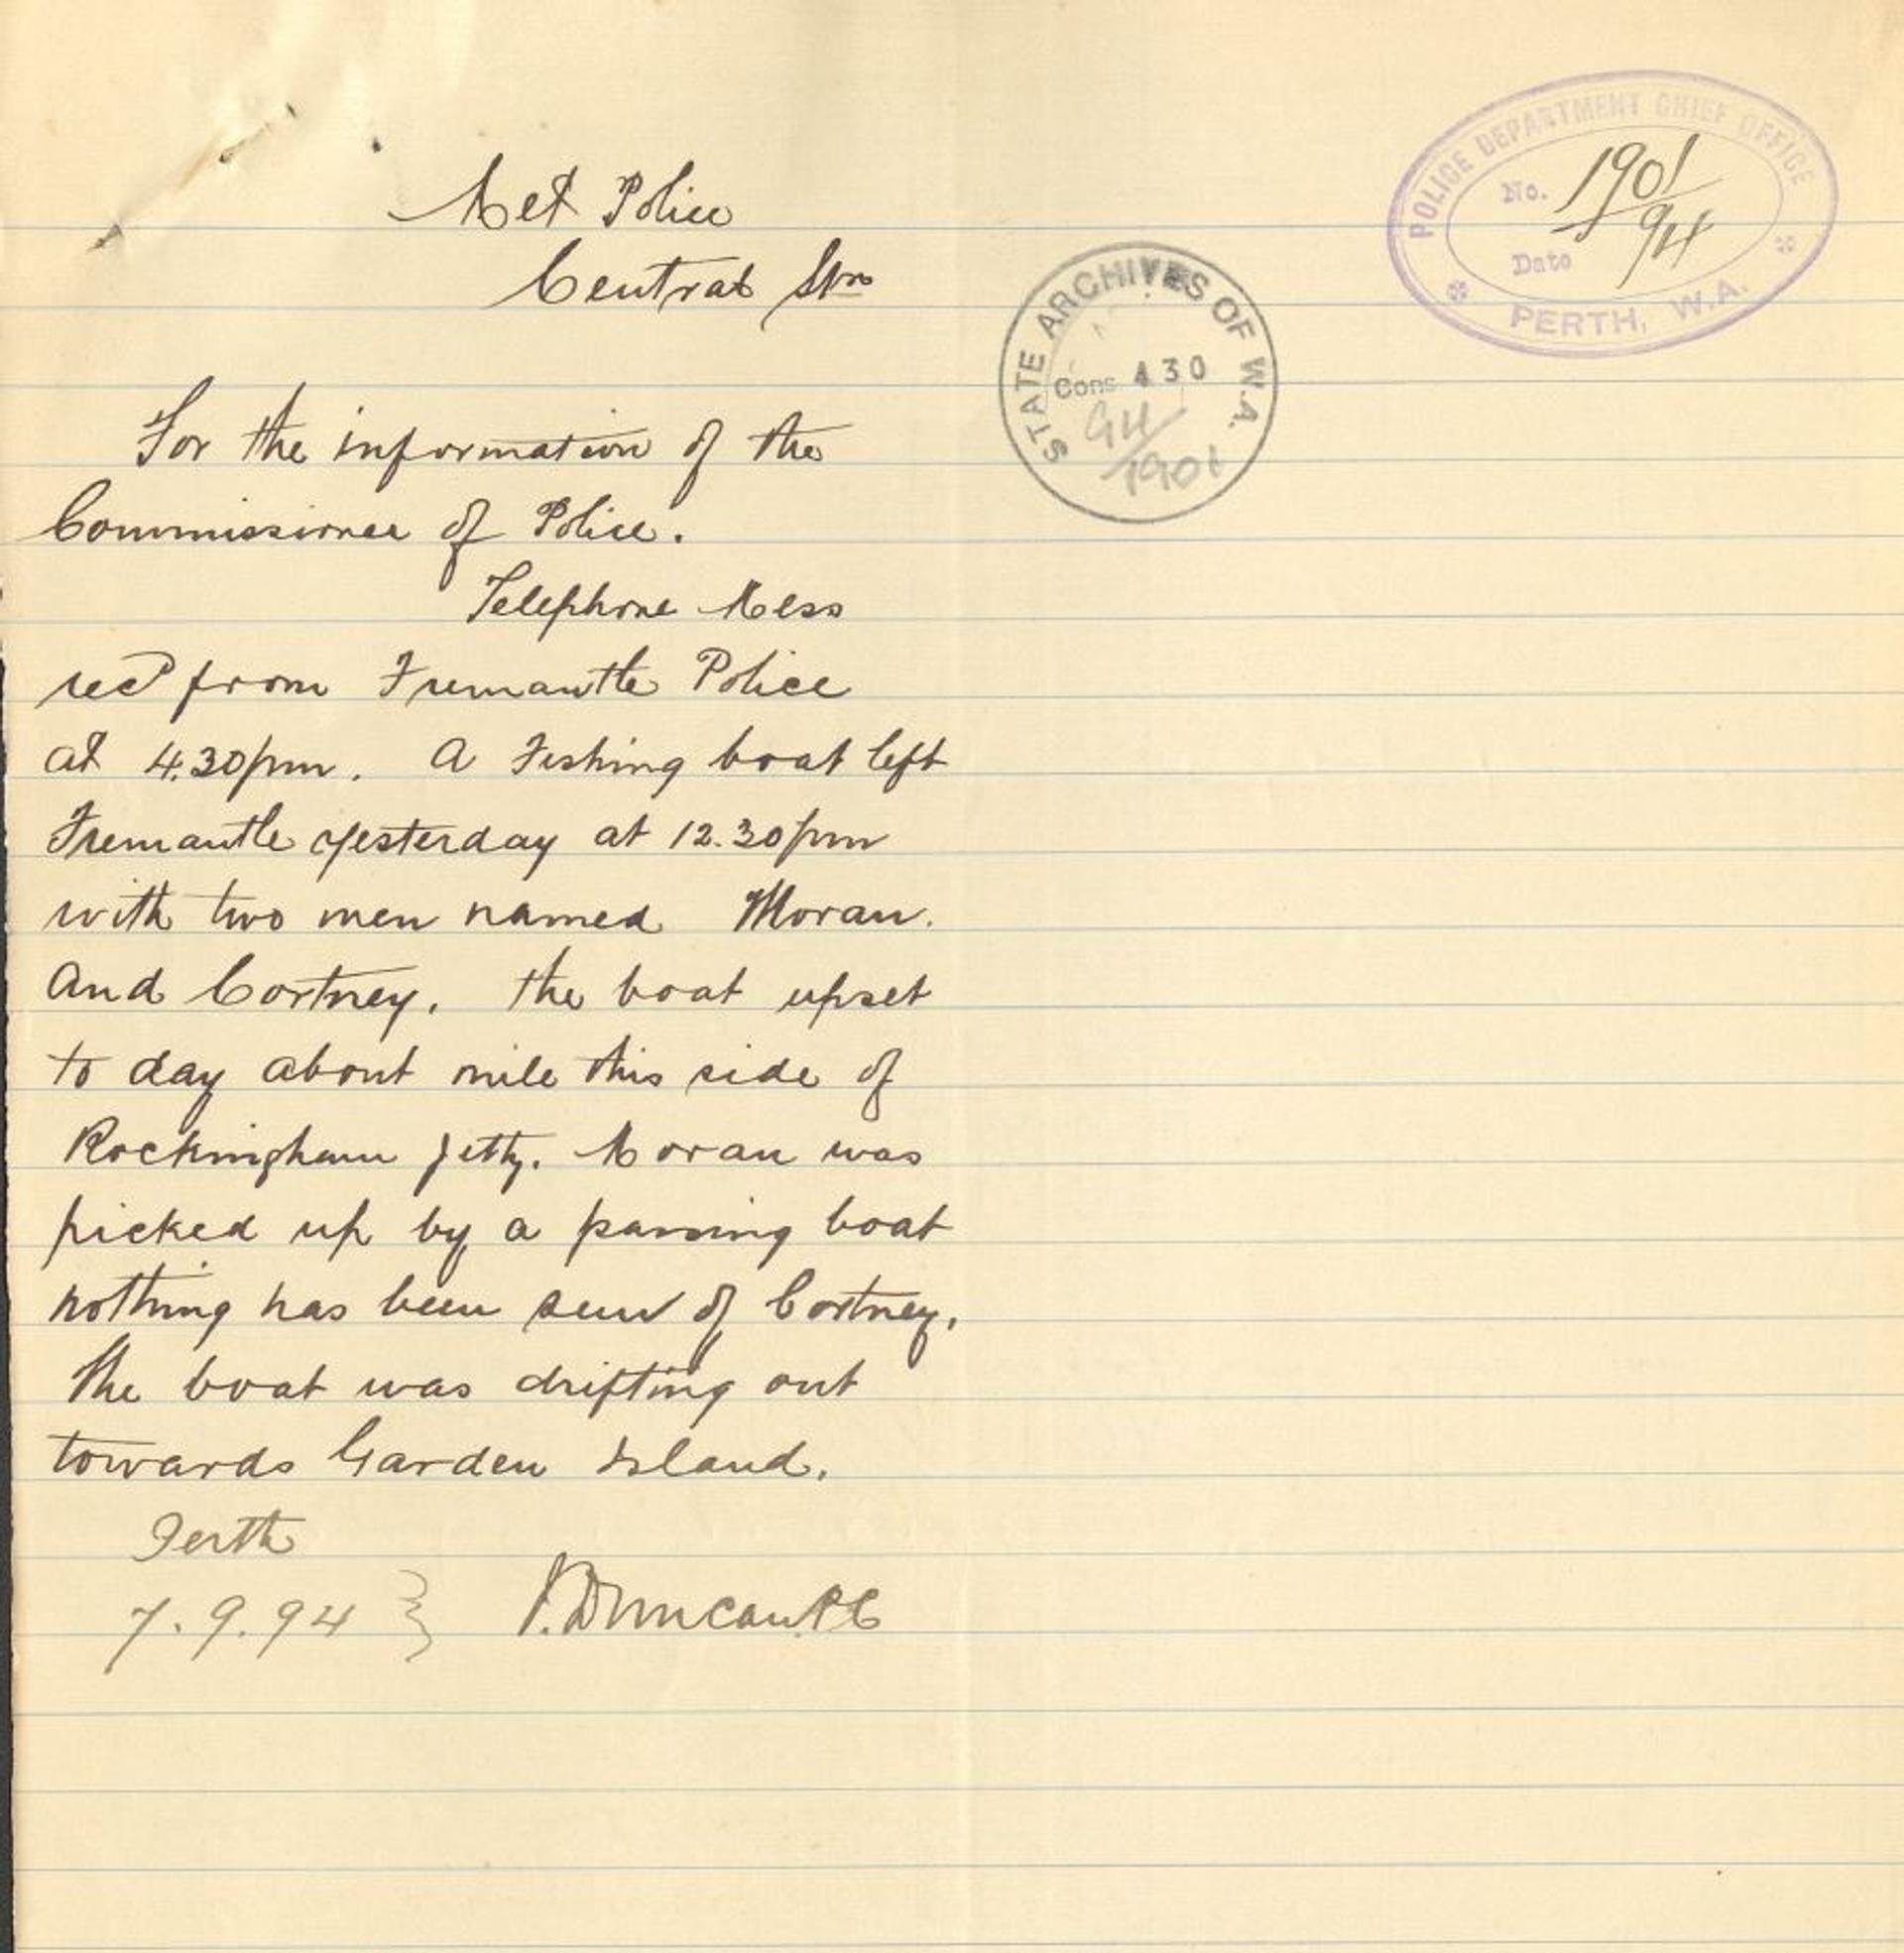 Met Police
Central Stn
POLICE DEPARTMENT CHIEF OFFICE
No. 1901/94
Date
PERTH, W.A.
STATE ARCHIVES OF W.A.
Cons 430
94/1901
For the information of the
Commissioner of Police.
Telephone Mess
recd from Fremantle Police
at 4.30pm. A Fishing boat left
Fremantle yesterday at 12.30pm
with two men named Moran.
and Cortney. The boat upset
to day about mile this side of
Rockingham Jetty. Moran was
picked up by a passing boat
nothing has been seen of Cortney.
The boat was drifting out
towards Garden Island.
Perth
7.9.94 } J. Duncan. PC